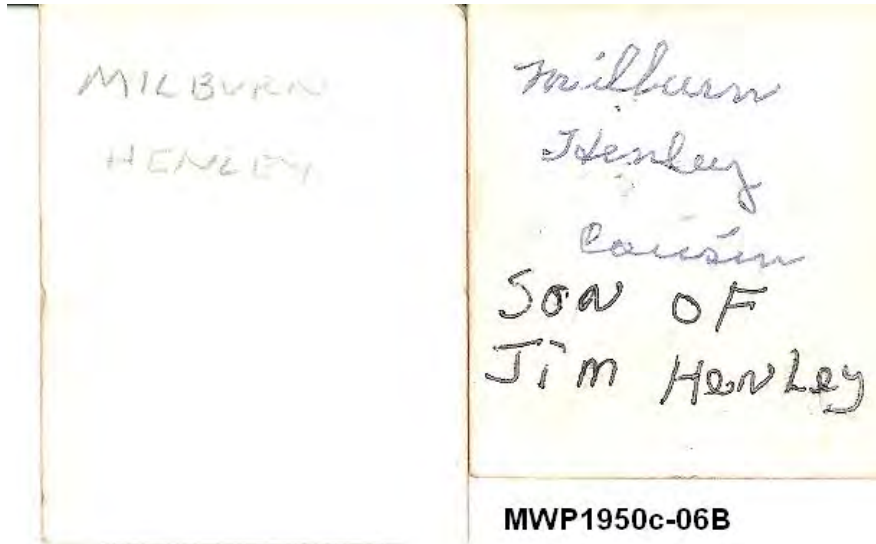 MILBURN
HENLEY
Milburn
Henley
Cousin
SON OF
Jim HeNLey
MWP1950c-06B